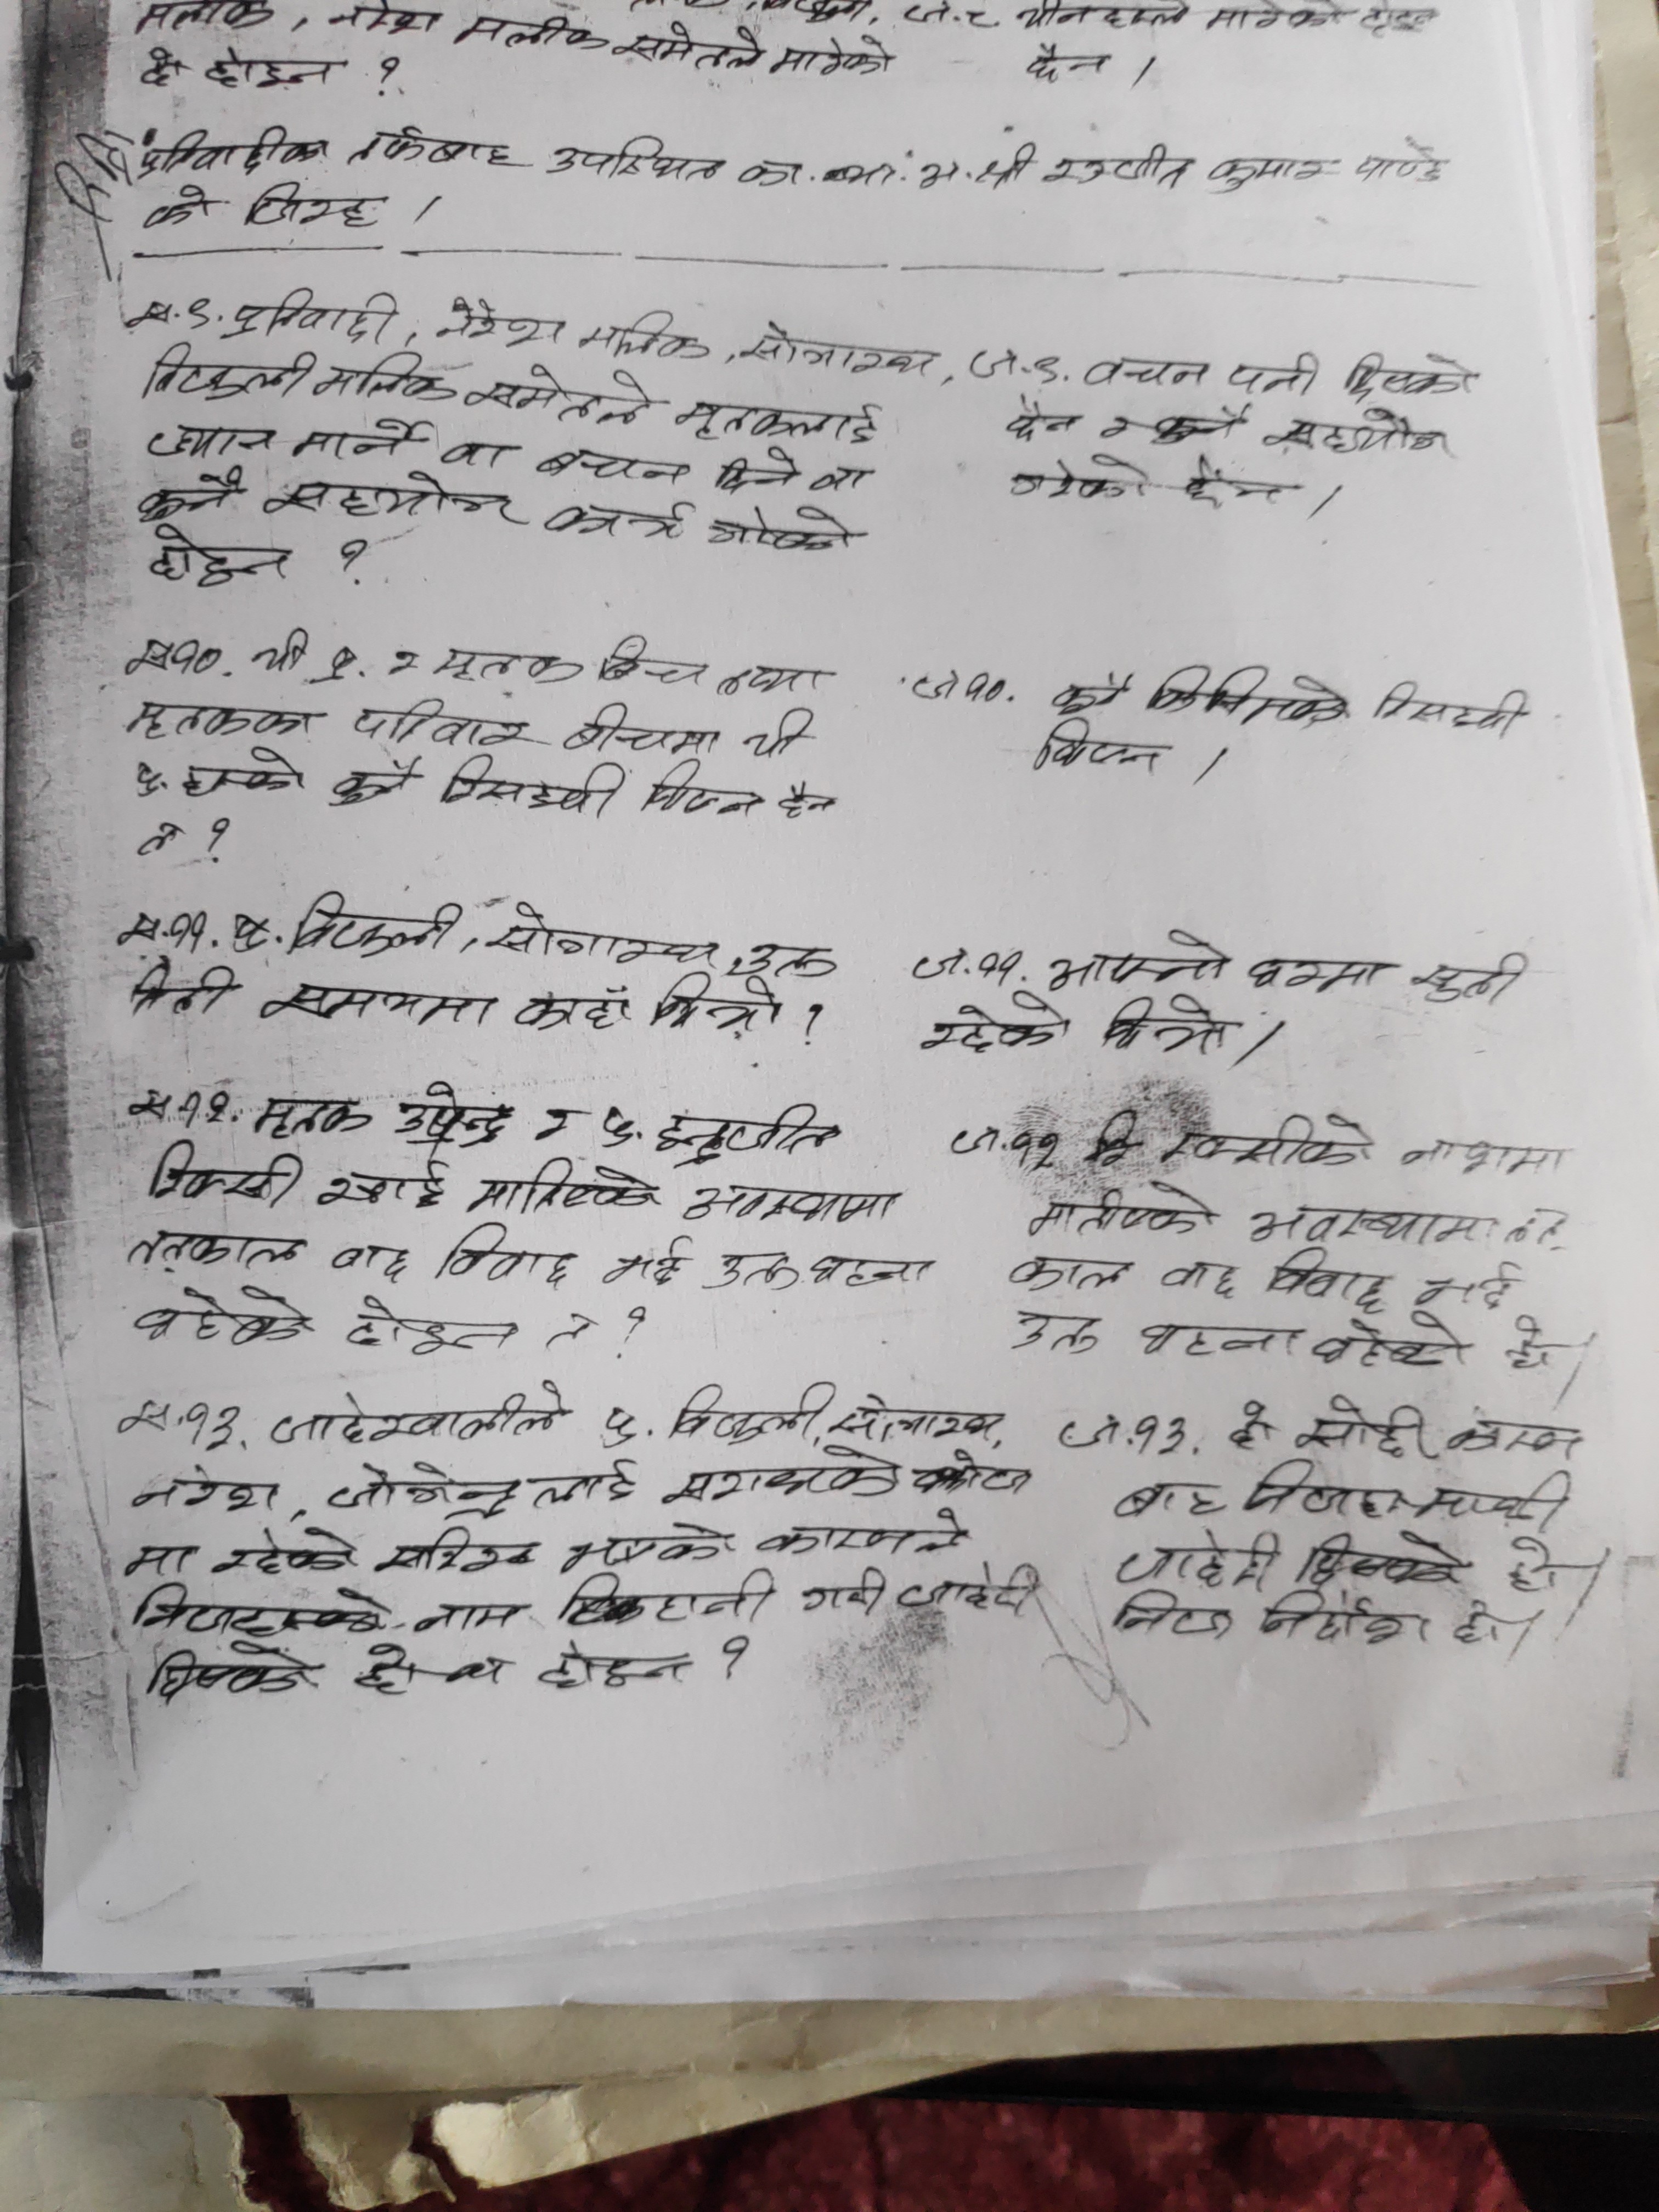 मलिक, नरेश मलिक समेतले मारेको
हो होइन ?
ज.८ यीनहरुले मारेको होइन
छैन ।
प्रतिवादीका तर्फबाट उपस्थित का. अ. श्री रञ्जीत कुमार पाण्डे
को जिरह ।
स.९. प्रतिवादी, नरेश मलिक, सोगारथ,
बिजुली मलिक समेतले मृतकलाई
ज्यान मार्ने वा बचन दिने वा
कुनै सहयोग कार्य गरेको
होइन ?
ज.९. वचन पनी दिएको
छैन र कुनै सहयोग
गरेको छैन ।
स१०. यी प्र. र मृतक बिच तथा
मृतकका परिवार बीचमा यी
प्र. हरुको कुनै रिसइवी थिएन हैन
त ?
ज१०. कुनै किसिमको रिसइवी
थिएन ।
स.११. प्र. बिजुली, सोगारथ उक्त
दिनी समयमा कहाँ थियो ?
ज.११. आफ्नो घरमा सुती
रहेको थियो ।
स१२. मृतक उपेन्द्र र प्र. इन्द्रजीत
रक्सी खाई मातिएको अवस्थामा
तत्काल वाद विवाद भई उक्त घटना
घटेको होइन त ?
ज.१२ रक्सीको नाशमा
मातीएको अवस्थामा तत्
काल वाद विवाद भई
उक्त घटना घटेको हो ।
स.१३. जाहेरवालीले प्र. बिजुली, सोगारथ,
नरेश, जोगेन्द्र लाई
मा रहेको भएको कारणले
निजहरुको नाम किटानी गरी जाहेरी
दिएको हो वा होइन ?
ज.१३. हो सोही कारण
बाट निजहरु माथी
जाहेरी दिएको हो ।
निज निर्दोश हो ।